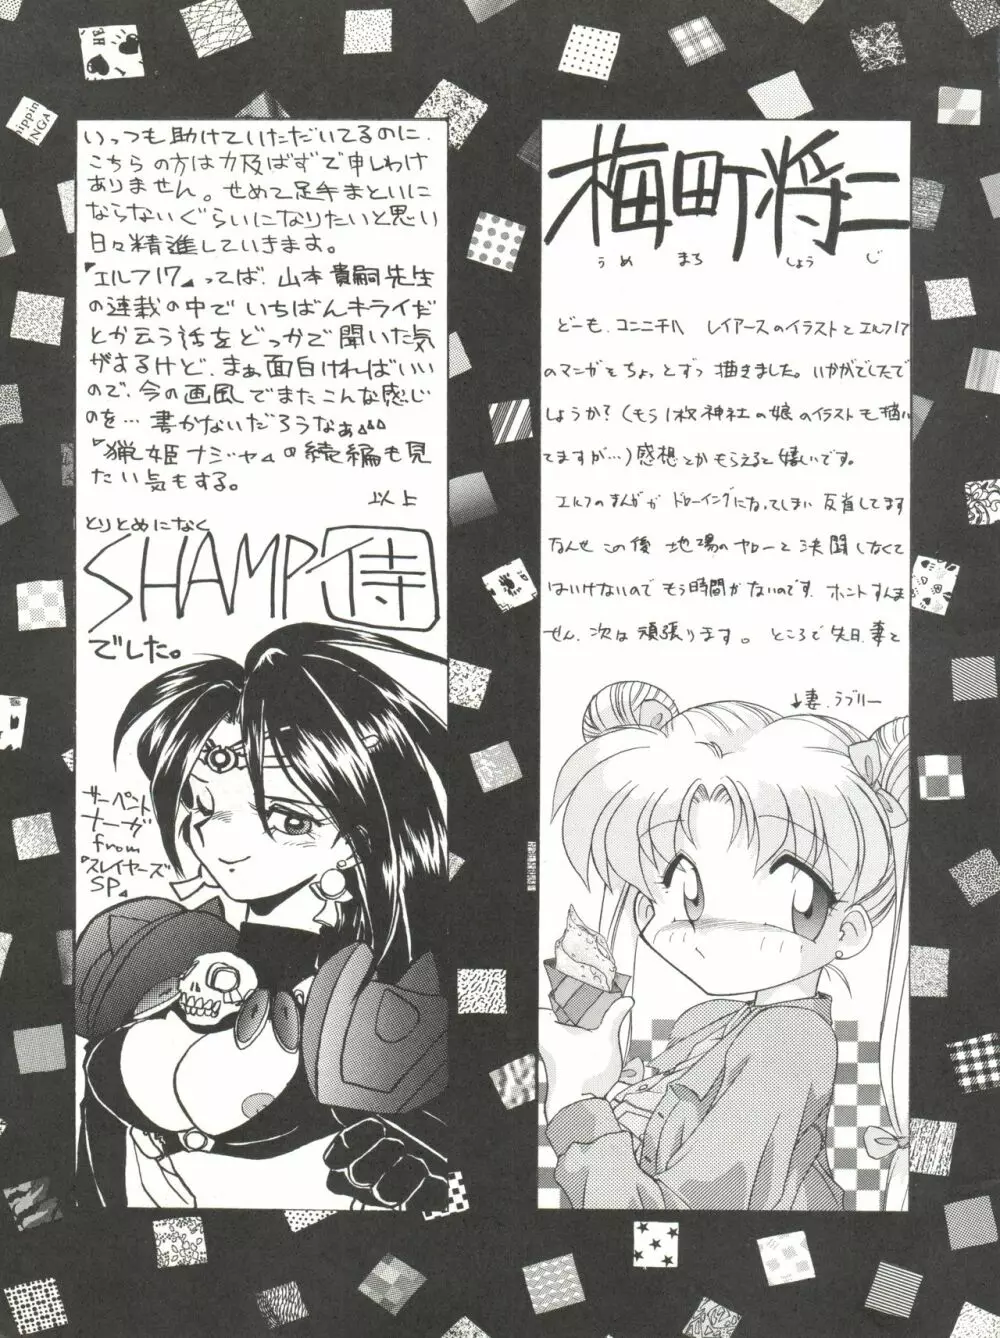 梅町将二
うめ まち しょう じ
どーも、コンニチハ レイアースのイラストとエルフ17
のマンガをちょっとずつ描きました。いかがでしたで
しょうか?(もう1枚神社の娘のイラストも描い
てますが…)感想とかもらえると嬉しいです。
エルフのまんがが ドローイングになってしまい 反省してます
なんせ この後 地場のヤローと 決闘しなくて
はいけないので もう時間がないのです ホントすんま
せん、次は頑張ります。ところで 先日、妻と
↓妻、ラブリー
いっつも助けていただいてるのに、
こちらの方は力及ばずで申しわけ
ありません。せめて足手まといに
ならないぐらいになりたいと思い
日々精進していきます。
『エルフ17』ってば、山本貴嗣先生
の連載の中でいちばんキライだ
とか云う話をどっかで聞いた気
がするけど、まぁ面白ければいい
ので、今の画風でまたこんな感じ
のを… 書かないだろうなぁ
『猟姫ナジャ』の続編も見
たい気もする。
以上
とりとめになく
SHAMP侍
でした。
サーペント
ナーガ
from
『スレイヤーズ
SP』